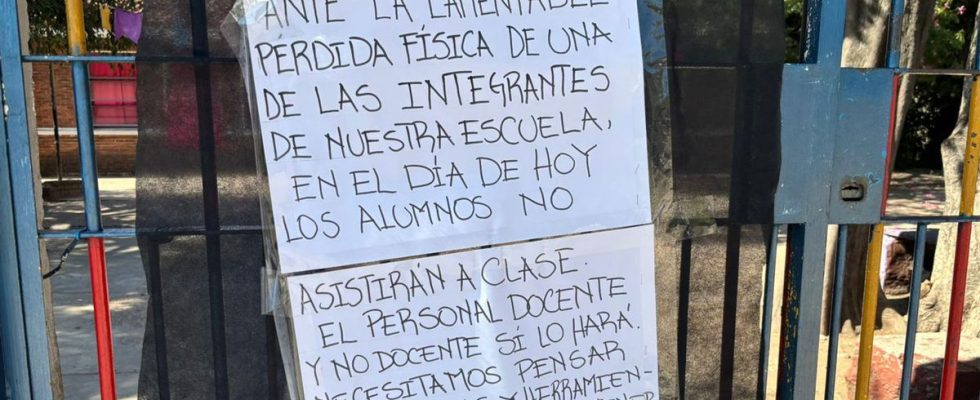 ANTE LA LAMENTABLE
PÉRDIDA FÍSICA DE UNA
DE LAS INTEGRANTES
DE NUESTRA ESCUELA,
EN EL DÍA DE HOY
LOS ALUMNOS NO
ASISTIRÁN A CLASE.
EL PERSONAL DOCENTE
Y NO DOCENTE SÍ LO HARÁ.
NECESITAMOS PENSAR
Y HERRAMIEN-